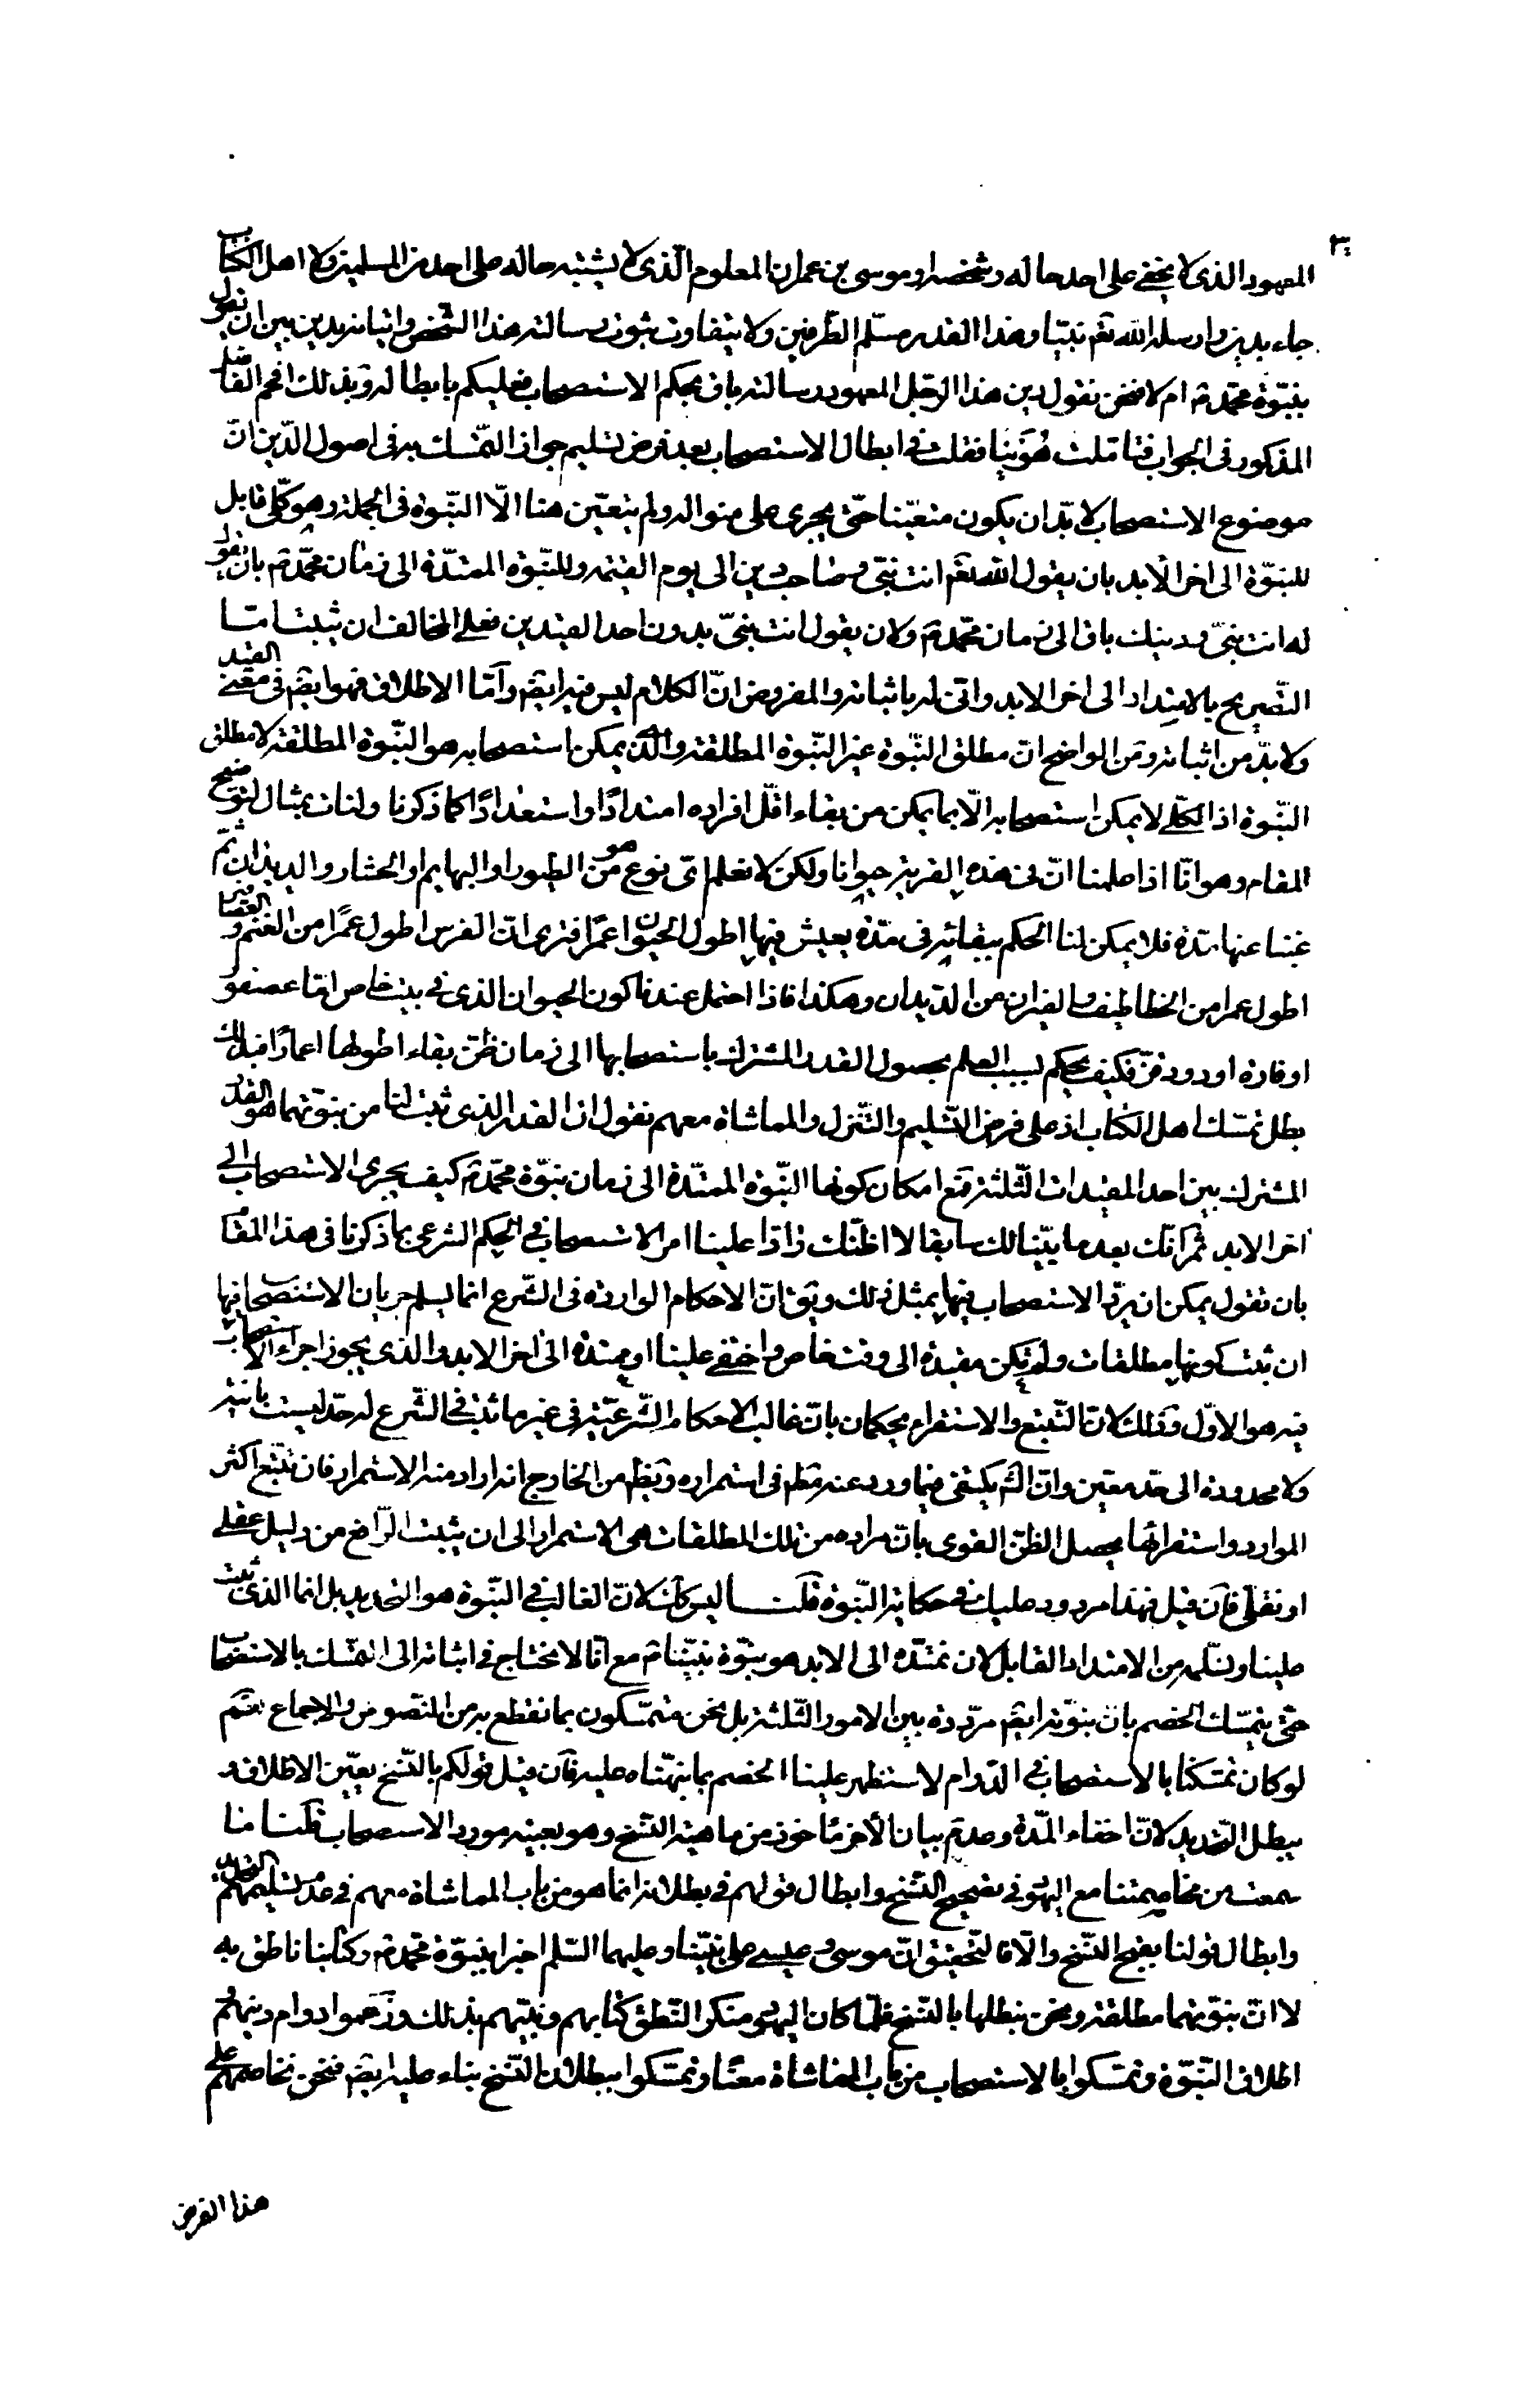 المعهود الذى لا يخفى على احد حاله وشخصه او موسى بن عمران المعلوم الّذى لا يشتبه حاله على احد من المسلمين ولا اهل الكتاب
جاء بدين وارسله اللّه تعم نبيّا وهذا القدر مسلّم الطّرفين ولا يتفاوت ثبوت رسالته هذا الشّخص واتيانه بدين بين ان نقول
بنبوّة محمّد ص ام لا فنحن نقول دين هذا الرّجل المعهود رسالته باق بحكم الاستصحاب فعليكم بابطاله وبذلك افحم الفاضل
المذكور فى الجواب فتامّلت هُوَيْنا فقلت فى ابطال الاستصحاب بعد فرض تسليم جواز التّمسّك به فى اصول الدّين انّ
موضوع الاستصحاب لا بدّ ان يكون متعيّنا حتّى يجرى على منواله ولم يتعيّن هنا الّا النّبوّة فى الجملة وهو كلّى قابل
للنبوّة الى اخر الابد بان يقول اللّه تعم انت نبىّ وصاحب دين الى يوم القيٰمة وللنّبوّة الممتدّة الى زمان محمّد ص بان يقول
له انت نبىّ ودينك باق الى زمان محمّد ص ولان يقول انت نبىّ بدون احد القيدين فعلى المخالف ان يثبت امّا
التّصريح بالامتداد الى اخر الابد وانّى له باثباته والمفروض انّ الكلام ليس فيه ايضم وامّا الاطلاق فهو ايضم فى معنى القيد
ولا بدّ من اثباته ومن الواضح انّ مطلق النّبوّة غير النّبوّة المطلقة والّذى يمكن استصحابه هو النّبوّة المطلقة لا مطلق
النّبوّة اذ الكلّى لا يمكن استصحابه الّا بما يمكن من بقاء اقلّ افراده امتدادًا واستعدادًا كما ذكرنا ولنات بمثال لتوضيح
المقام وهو انّا اذا علمنا انّ فى هذه القرية حيوانا ولكن لا نعلم اىّ نوع هو من الطيور او البهايم او الحشار والديدان ثمّ
غبنا عنها مدّة فلا يمكن لنا الحكم ببقائه فى مدّة يعيش فيها اطول الحيوان عمرًا فترى انّ الفرس اطول عمرًا من الغنم والعصافير
اطول عمرا من الخطاطيف والفيران من الدّيدان وهكذا فاذا احتمل عندنا كون الحيوان الذى فى بيت خاص امّا عصفور
او فارة او دود قزّ فكيف يحكم بسبب العلم بحصول القدر المشترك باستصحابها الى زمان ظنّ بقاء اطولها اعمارًا فبذلك
بطل تمسّك اهل الكتاب اذ على فرض التّسليم والتّنزل والمماشاة معهم نقول ان القدر الّذى ثبت لنا من نبوّتهما هو القدر
المشترك بين احد المقيدات الثّلثة فمع امكان كونها النّبوّة الممتدّة الى زمان نبوّة محمّد ص كيف يجرى الاستصحاب الى
اخر الابد ثمّ انّك بعد ما بيّنا لك سابقا لا اظنّك رادّا علينا امر الاستصحاب فى الحكم الشرعى بما ذكرنا فى هذا المقام
بان تقول يمكن ان يردّ الاستصحاب فيها بمثل ذلك ويق انّ الاحكام الواردة فى الشّرع انما يسلم جريان الاستصحاب فيها
ان ثبت كونها مطلقات ولم يكن مقيدة الى وقت خاص واختفى علينا او ممتدّة الى اخر الابد والذى يجوز اجراء الاستصحاب
فيه هو الاوّل وذلك لانّ التّتبّع والاستقراء يحكمان بانّ غالب الاحكام الشّرعيّة فى غير ما ثبت فى الشّرع له حدّ ليست بانيّة
ولا محدودة الى حدّ معيّن وانّ الشّم يكتفى فيما ورد عنه مطم فى استمراره ويظم من الخارج انه اراد منه الاستمرار فان تتبّع اكثر
الموارد واستقرائها يحصل الظنّ القوى بانّ مراده من تلك المطلقات هى الاستمرار الى ان يثبت الرّافع من دليل عقلى
او نقلى فان قيل فهذا مردود عليك فى حكاية النّبوّة قلت ليس كك لانّ الغالب فى النّبوّة هو التحديد بل انما الذى ثبت
علينا ونسلّمه من الامتداد القابل لان نمتدّه الى الابد هو نبوّة نبيّنا ص مع انّا لا نحتاج فى اثباته الى التمسّك بالاستصحاب
حتّى يتمسّك الخصم بانّ نبوّته ايضم مردّدة بين الامور الثّلثة بل نحن متمسّكون بما نقطع به من النّصوص والاجماع نعم
لو كان تمسّكنا بالاستصحاب فى الدّوام لاستظهر علينا الخصم بما نبّهناه عليه فان قيل قولكم بالنّسخ يعيّن الاطلاق و
يبطل التّحديد لانّ اخفاء المدّة وعدم بيان الاخر ماخوذ من ماهية النّسخ وهو بعينه مورد الاستصحاب قلت ما
سمعت من مخاصمتنا مع اليهود فى تصحيح النّسخ وابطال قولهم فى بطلانه انما هو من باب المماشاة معهم فى عدم تسليمهم التحديد
وابطال قولنا بقبح النّسخ والّا فالتّحقيق انّ موسى وعيسى على نبيّنا وعليهما السّلام اخبرا بنبوّة محمّد ص وكتابنا ناطق به
لا انّ نبوّتهما مطلقة ونحن نبطلها بالنّسخ فلمّا كان اليهود منكر النّطق كتابهم ونبيّهم بذلك وزعموا دوام دينهم ثم
اطلاق النّبوّة وتمسّكوا بالاستصحاب من باب المماشاة معنا وتمسّكوا ببطلان النّسخ بناء عليه ايضم فنحن نخاصمهم على
هذا الفرض